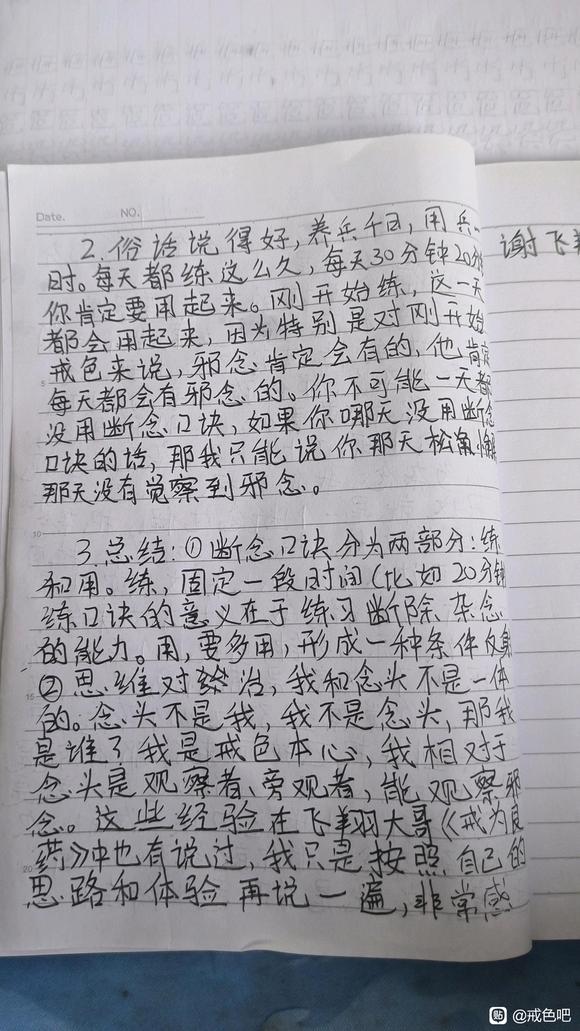 Date.
NO.
2.俗话说得好,养兵千日,用兵一
时。每天都练这么久,每天30分钟20分钟
你肯定要用起来。刚开始练,这一天
都会用起来,因为特别是对刚开始
戒色来说,邪念肯定会有的,他肯定
每天都会有邪念的。你不可能一天都
没用断念口诀,如果你哪天没用断念
口诀的话,那我只能说你那天松懈
那天没有觉察到邪念。
3.总结:①断念口诀分为两部分:练
和用。练,固定一段时间(比如20分钟
练口诀的意义在于练习断除杂念
的能力。用,要多用,形成一种条件反射
②思维对治,我和念头不是一体
的。念头不是我,我不是念头,那我
是谁?我是戒色本心,我相对于
念头是观察者、旁观者,能观察邪
念。这些经验在飞翔大哥《戒为良
药》中也有说过,我只是按照自己的
思路和体验再说一遍,非常感
谢飞翔
5
10
15
20
贴 @戒色吧